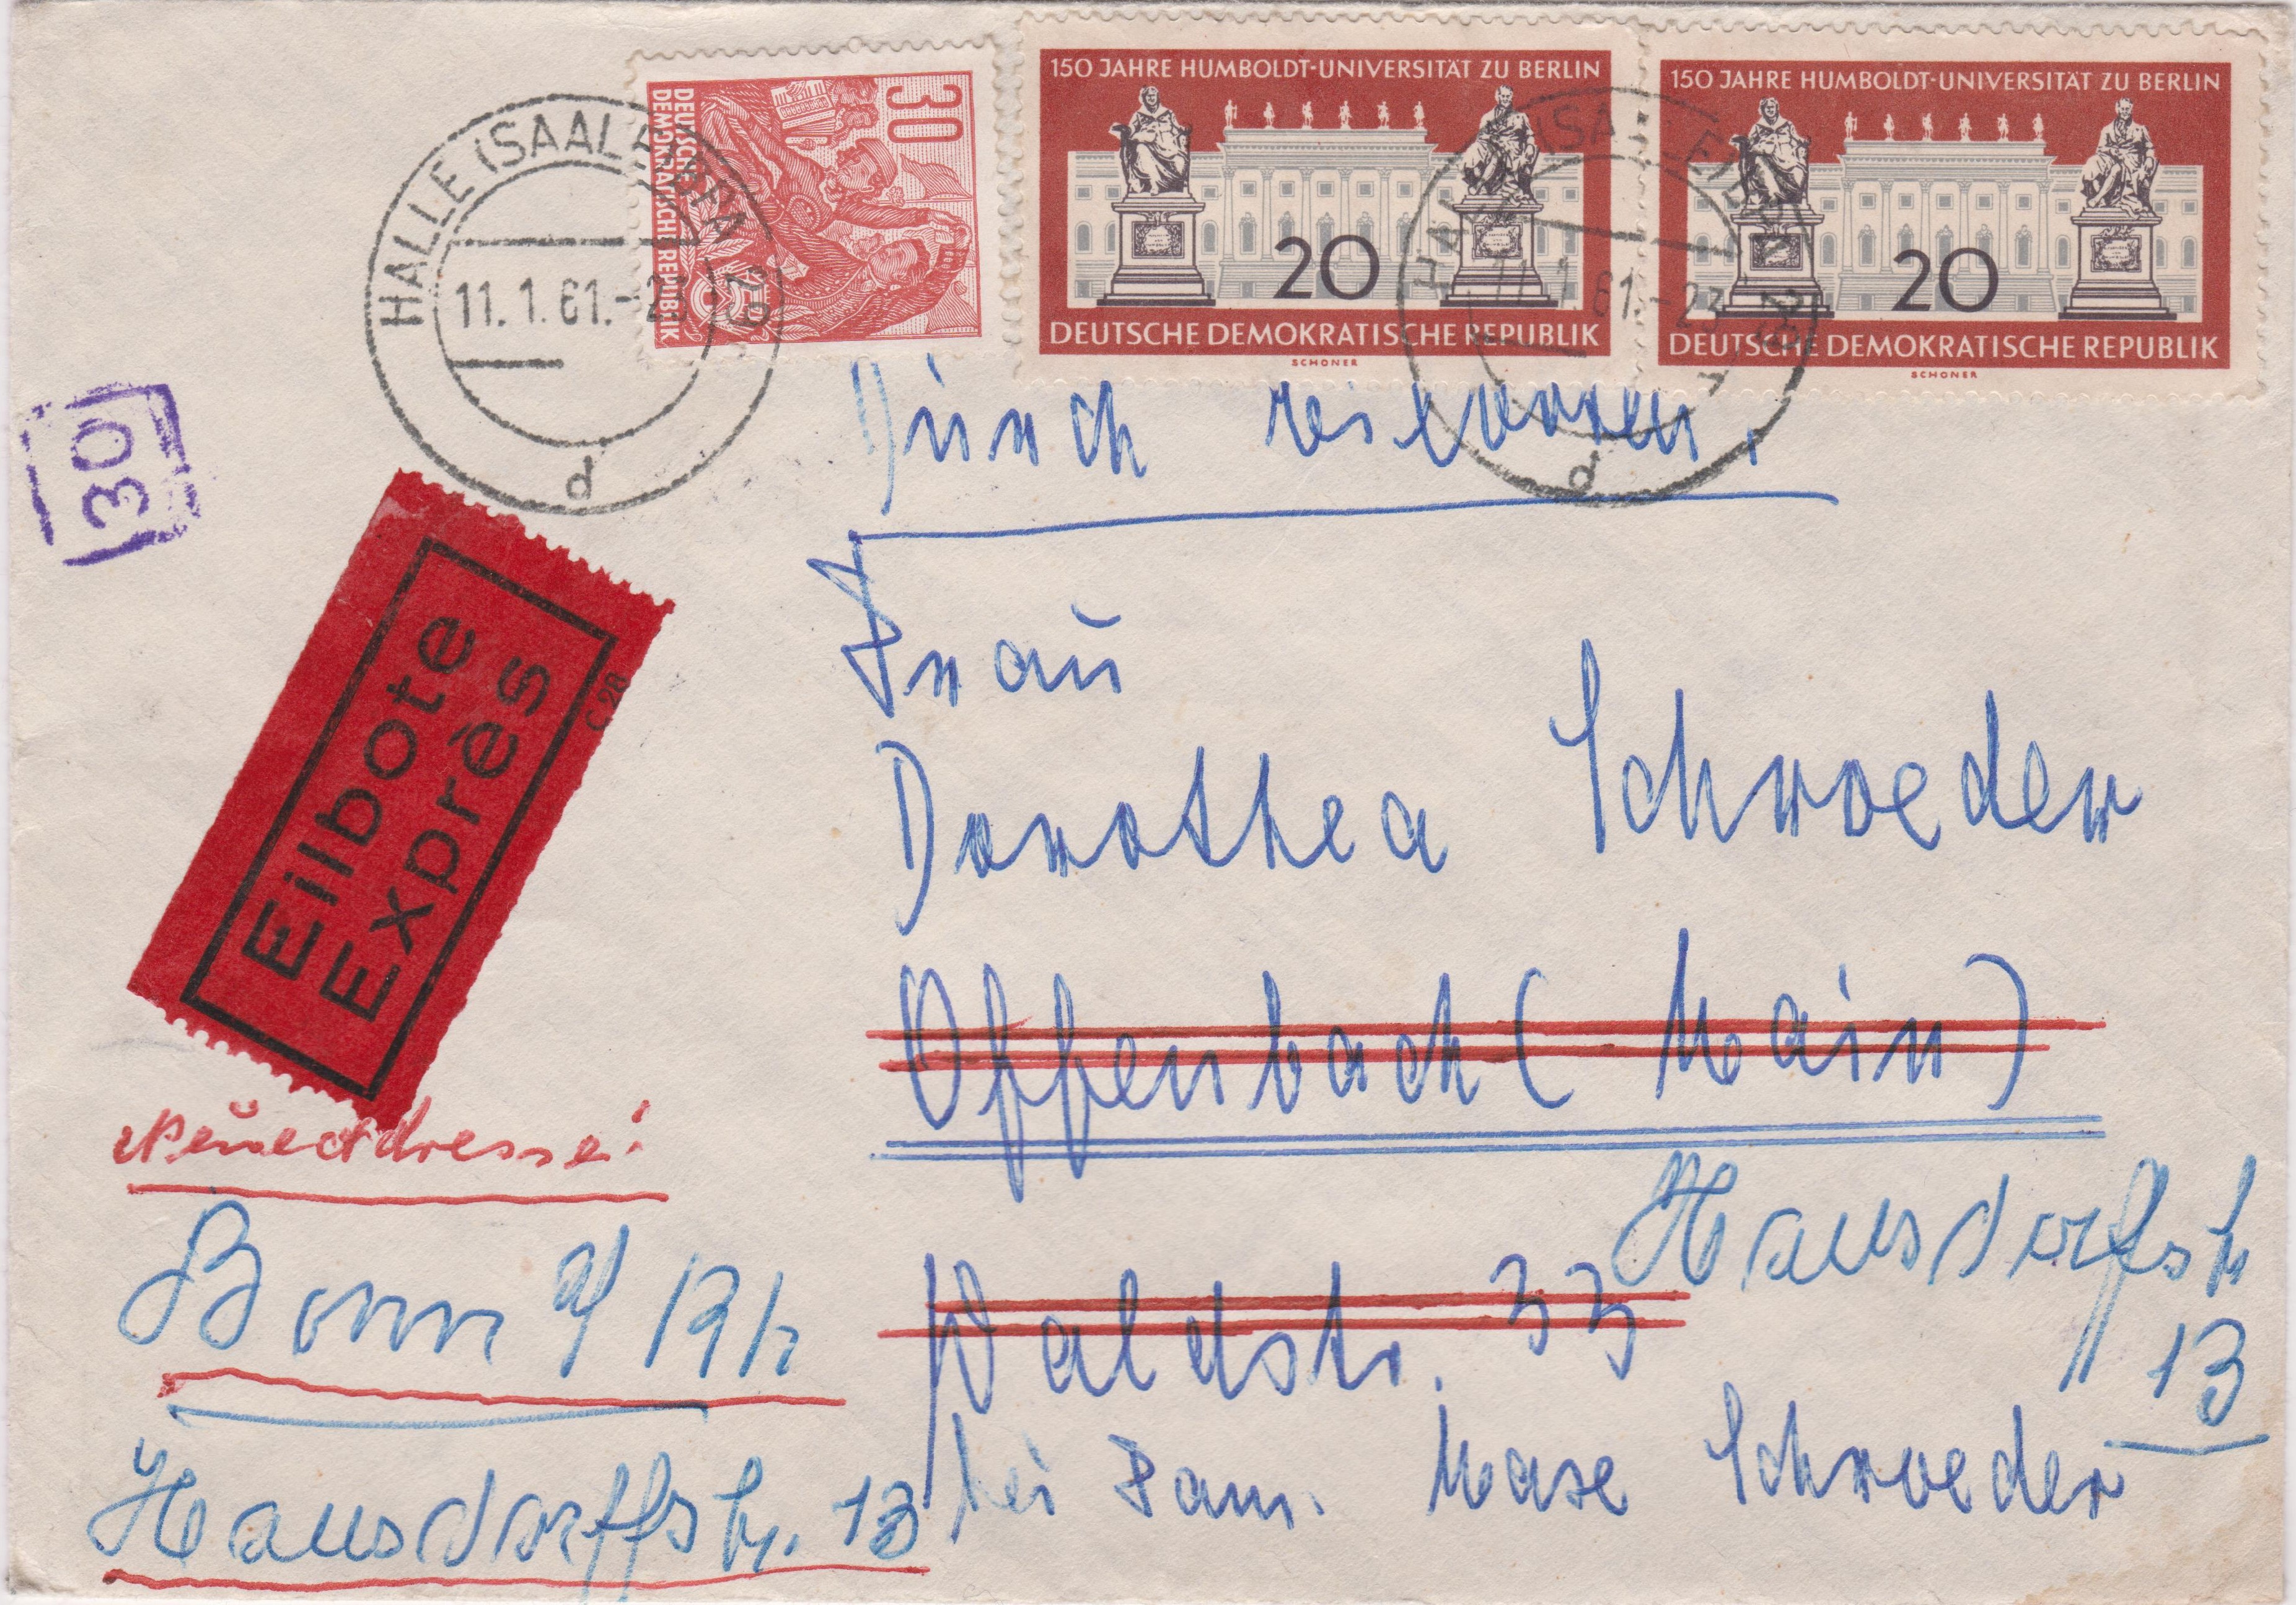 30
DEUTSCHE
DEMOKRATISCHE REPUBLIK
150 JAHRE HUMBOLDT-UNIVERSITÄT ZU BERLIN
20
DEUTSCHE DEMOKRATISCHE REPUBLIK
SCHÖNER
150 JAHRE HUMBOLDT-UNIVERSITÄT ZU BERLIN
20
DEUTSCHE DEMOKRATISCHE REPUBLIK
SCHÖNER
HALLE (SAALE)
11.1.61.-23
d
11.1.61.-23
d
30
Eilbote
Exprès
C 28
Dürch
Fraü
Dorothea Schroeder
Offenbach (Main)
Waldstr. 33
bei Fam. Schroeder
Hausdorffstr
13
Neue Adresse!
Bonn a/Rh
Hausdorffstr. 13